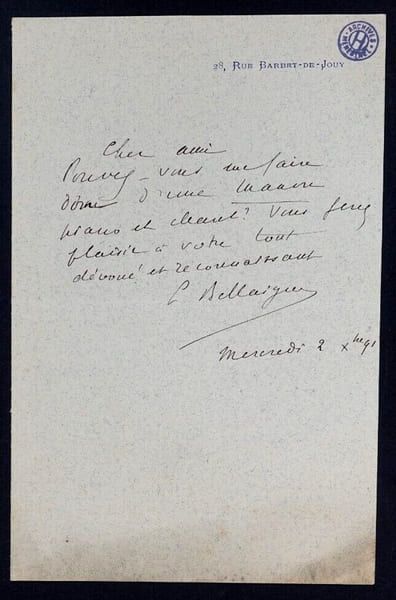 ARCHIVES HEUGEL
28, RUE BARBET-DE-JOUY
Cher ami
Pouvez-vous me faire
don d'une Manon
piano et chant? Vous ferez
plaisir à votre tout
dévoué et reconnaissant
C Bellaigue
Mercredi 2 Xbre 91